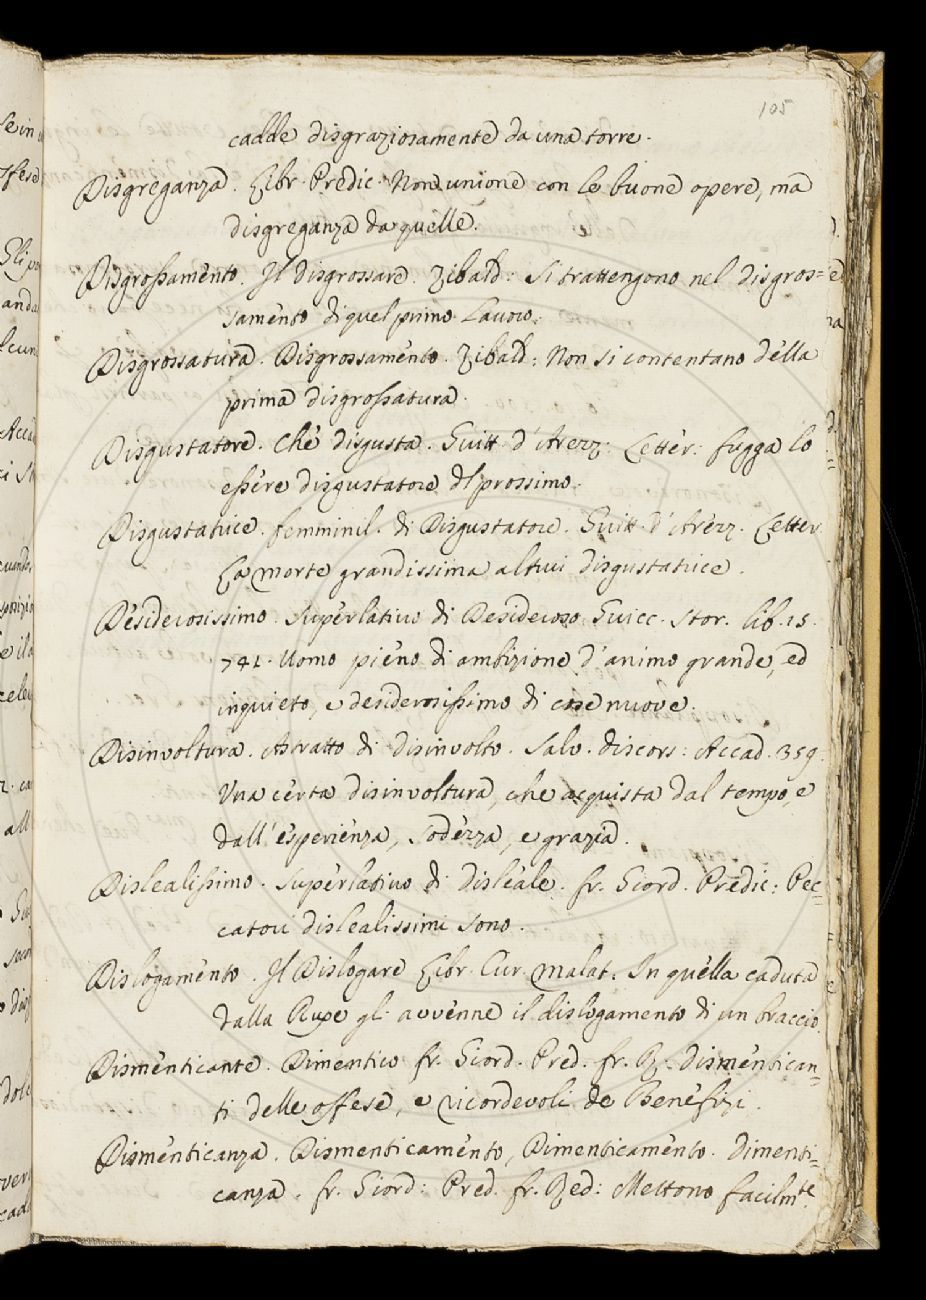 105
cadde disgraziosamente da una torre.
Disgreganza. Libr. Predic. Non unione con le buone opere, ma
disgreganza da quelle.
Disgrossamento. Il disgrossare. Zibald: Si trattengono nel disgros=
samento di quel primo Lavoro.
Disgrossatura. Disgrossamento. Zibald: Non si contentano della
prima disgrossatura.
Disgustatore. Che disgusta. Guitt. d'Arezz. Letter. fugga lo
essere disgustatore del prossimo.
Disgustatrice. femminil. di Disgustatore. Guitt. d'Arezz. Letter.
La morte grandissima altrui disgustatrice.
Desiderosissimo. Superlativo di Desideroso. Guicc. Stor. lib. 15.
741. Uomo pieno di ambizione d'animo grande, ed
inquieto, e desiderosissimo di cose nuove.
Disinvoltura. Astratto di disinvolto. Salv. discors: Accad. 359.
Una certa disinvoltura, che acquista dal tempo, e
dall'esperienza, sodezza, e grazia.
Dislealissimo. Superlativo di disleale. fr. Giord. Predic: Pec=
catori dislealissimi sono.
Dislogamento. Il Dislogare Libr. Cur. malat. In quella caduta
dalla Rupe gl. avvenne il dislogamento di un braccio.
Dismenticante. Dimentico fr. Giord. Pred. fr. R. dismentican=
ti delle offese, e ricordevoli de Benefizi.
Dismenticanza. Dismenticamento, Dimenticamento. Dimenti=
canza. fr. Giord: Pred. fr. Red: Mettono facilmte